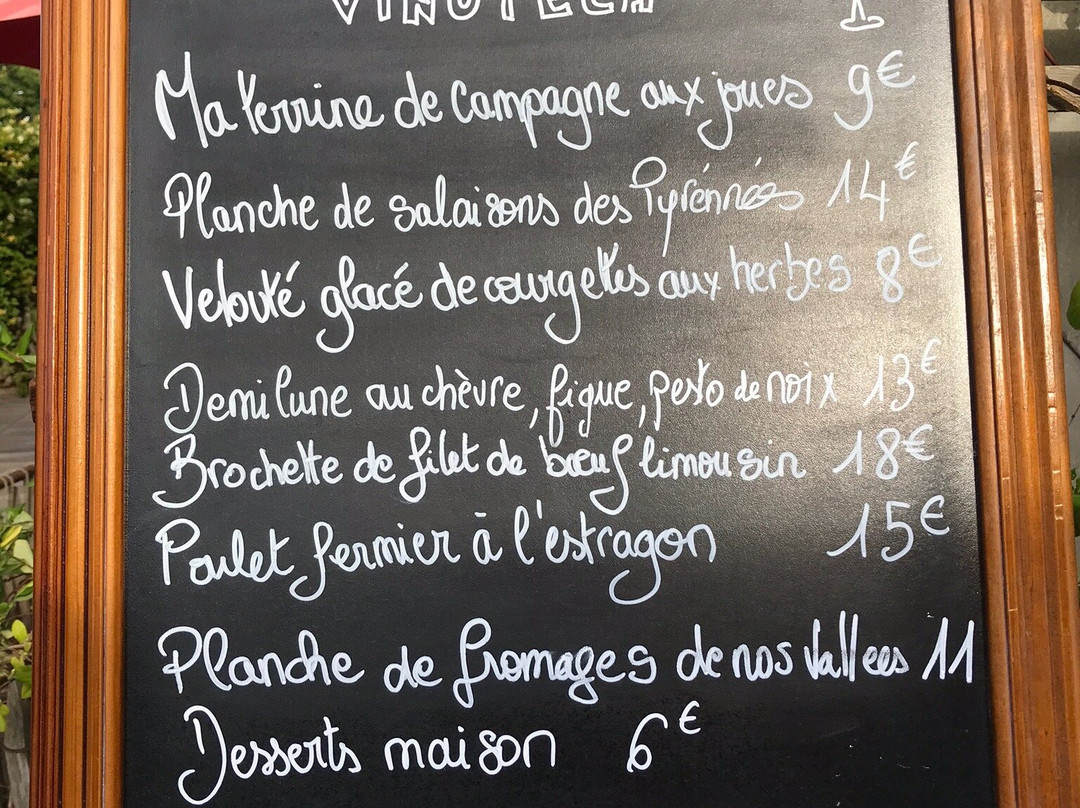 VINOTECA
Ma terrine de Campagne aux joues 9€
Planche de salaisons des Pyrénnées 14€
Velouté glacé de courgettes aux herbes 8€
Demi lune au chèvre, figue, pesto de noix 13€
Brochette de filet de bœuf limousin 18€
Poulet fermier à l'estragon 15€
Planche de fromages de nos Vallees 11
Desserts maison 6€